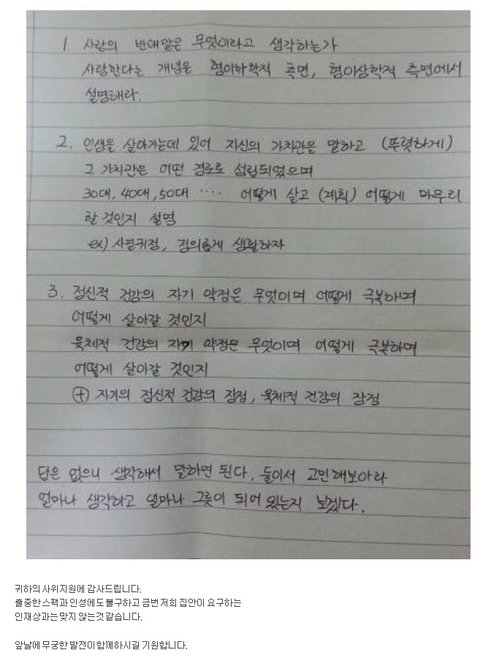 1. 사랑의 반대말은 무엇이라고 생각하는가
사랑한다는 개념을 형이하학적 측면, 형이상학적 측면에서
설명해라.
2. 인생을 살아가는데 있어 자신의 가치관을 말하고 (뚜렷하게)
그 가치관은 어떤 경로로 성립되었으며
30대, 40대, 50대 .... 어떻게 살고 (계획) 어떻게 마무리
할 것인지 설명
ex) 사필귀정, 정의롭게 생활하자
3. 정신적 건강의 자기 약점은 무엇이며 어떻게 극복하며
어떻게 살아갈 것인지
육체적 건강의 자기 약점은 무엇이며 어떻게 극복하며
어떻게 살아갈 것인지
⊕ 자기의 정신적 건강의 장점, 육체적 건강의 장점
답은 없으니 생각해서 말하면 된다, 둘이서 고민해보아라
얼마나 생각하고 얼마나 그릇이 되어 있는지 보겠다.
귀하의 사위지원에 감사드립니다.
출중한 스팩과 인성에도 불구하고 금번 저희 집안이 요구하는
인재상과는 맞지 않는것 같습니다.
앞날에 무궁한 발전이 함께하시길 기원합니다.